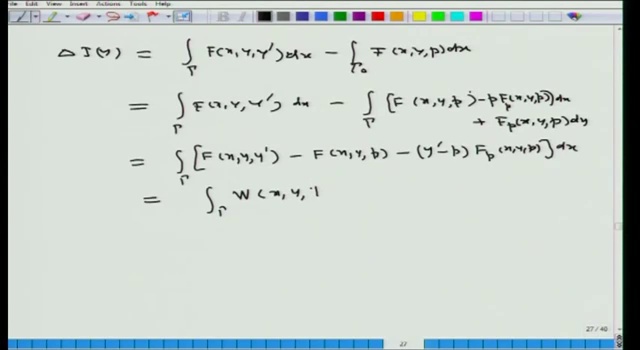 File Edit View Insert Actions Tools Help
Δ J(y) = ∫_Γ F(x, y, y') dx − ∫_Γ₀ F(x, y, p) dx
= ∫_Γ F(x, y, y') dx − ∫_Γ [F(x, y, p) − p F_p(x, y, p)] dx
+ F_p(x, y, p) dy
= ∫_Γ [F(x, y, y') − F(x, y, p) − (y' − p) F_p(x, y, p)] dx
= ∫_Γ W(x, y,
27 / 40
27